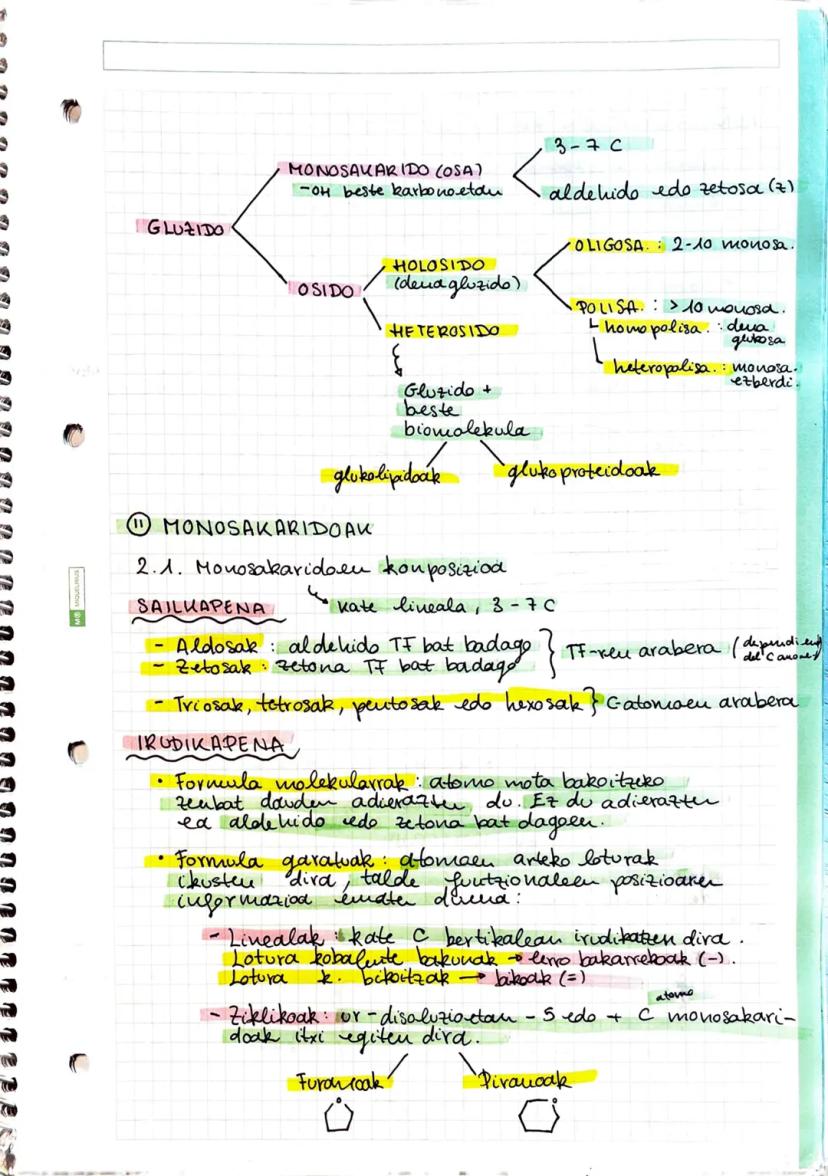 GLUZIDO
MONOSAKARIDO (OSA)
-OH beste karbonoetan
3-7 C
aldehido edo zetosa (z)
OSIDO
HOLOSIDO
(dena gluzido)
OLIGOSA. : 2-10 monosa.
POLISA. : > 10 monosa.
homopolisa. : dena
glukosa
heteropolisa. : monosa.
ezberdi.
HETEROSIDO
Gluzido +
beste
biomolekula
glukolipidoak
glukoproteidoak
11 MONOSAKARIDOAK
2.1. Monosakaridoen konposizioa
Kate lineala, 3-7 C
SAILKAPENA
- Aldosak : aldehido TF bat badago
- Zetosak : zetona TF bat badago
TF-ren arabera (dependiend
del C anomer)
- Triosak, tetrosak, pentosak edo hexosak } C atomoen arabera
IRUDIKAPENA
• Formula molekularrak : atomo mota bakoitzeko
zenbat dauden adierazten du. Ez du adierazten
ea aldehido edo zetona bat dagoen.
• Formula garatuak : atomoen arteko loturak
ikusten dira, talde funtzionaleen posizioaren
informazioa ematen duena :
- Linealak : kate C bertikalean irudikatzen dira.
Lotura kobalente bakunak → lerro bakarrekoak (-).
Lotura k. bikoitzak → bikoak (=)
- Ziklikoak : ur-disoluzioetan - 5 edo + C atomo monosakari-
doak itxi egiten dira.
Furanoak
Piranoak
MIQUELRIUS